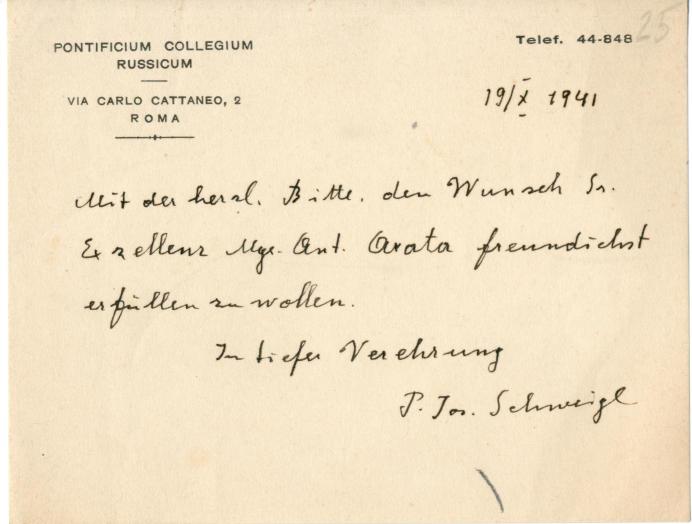 PONTIFICIUM COLLEGIUM
RUSSICUM
VIA CARLO CATTANEO, 2
ROMA
Telef. 44-848
25
19/X 1941
Mit der herzl. Bitte, den Wunsch Sr.
Exzellenz Mgr. Ant. Arata freundichst
erfüllen zu wollen.
In tiefer Verehrung
P. Jos. Schweigl